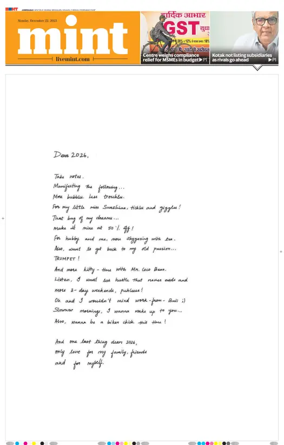 mint
livemint.com
हार्दिक आभार
GST
Centre weighs compliance
relief for MSMEs in budget
Kotak not listing subsidiaries
as rivals go ahead
Dear 2026,
Take notes.
Manifesting the following...
More bubble less trouble.
For my little miss Sunshine, tickle and giggles!
That bag of my dreams...
make it mine at 50% off!
For hubby and me, more
Also, want to get back to my old passion...
TRUMPET!
And more kitty-time with Mr.
Listen, I want less hustle that
more 3-day weekends, please!
Oh and I wouldn't mind work-from-
Slower mornings, I wanna wake up to you...
Also, wanna be a biker chick this time!
And one last thing dear 2026,
only love for my family, friends
and for myself.